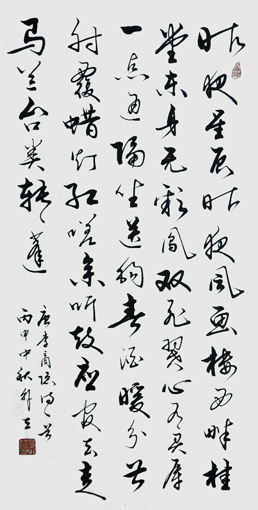 昨夜星辰昨夜风画楼西畔桂
堂东身无彩凤双飞翼心有灵犀
一点通隔坐送钩春酒暖分曹
射覆蜡灯红嗟余听鼓应官去走
马兰台类转蓬
唐李商隐诗一首
丙申中秋